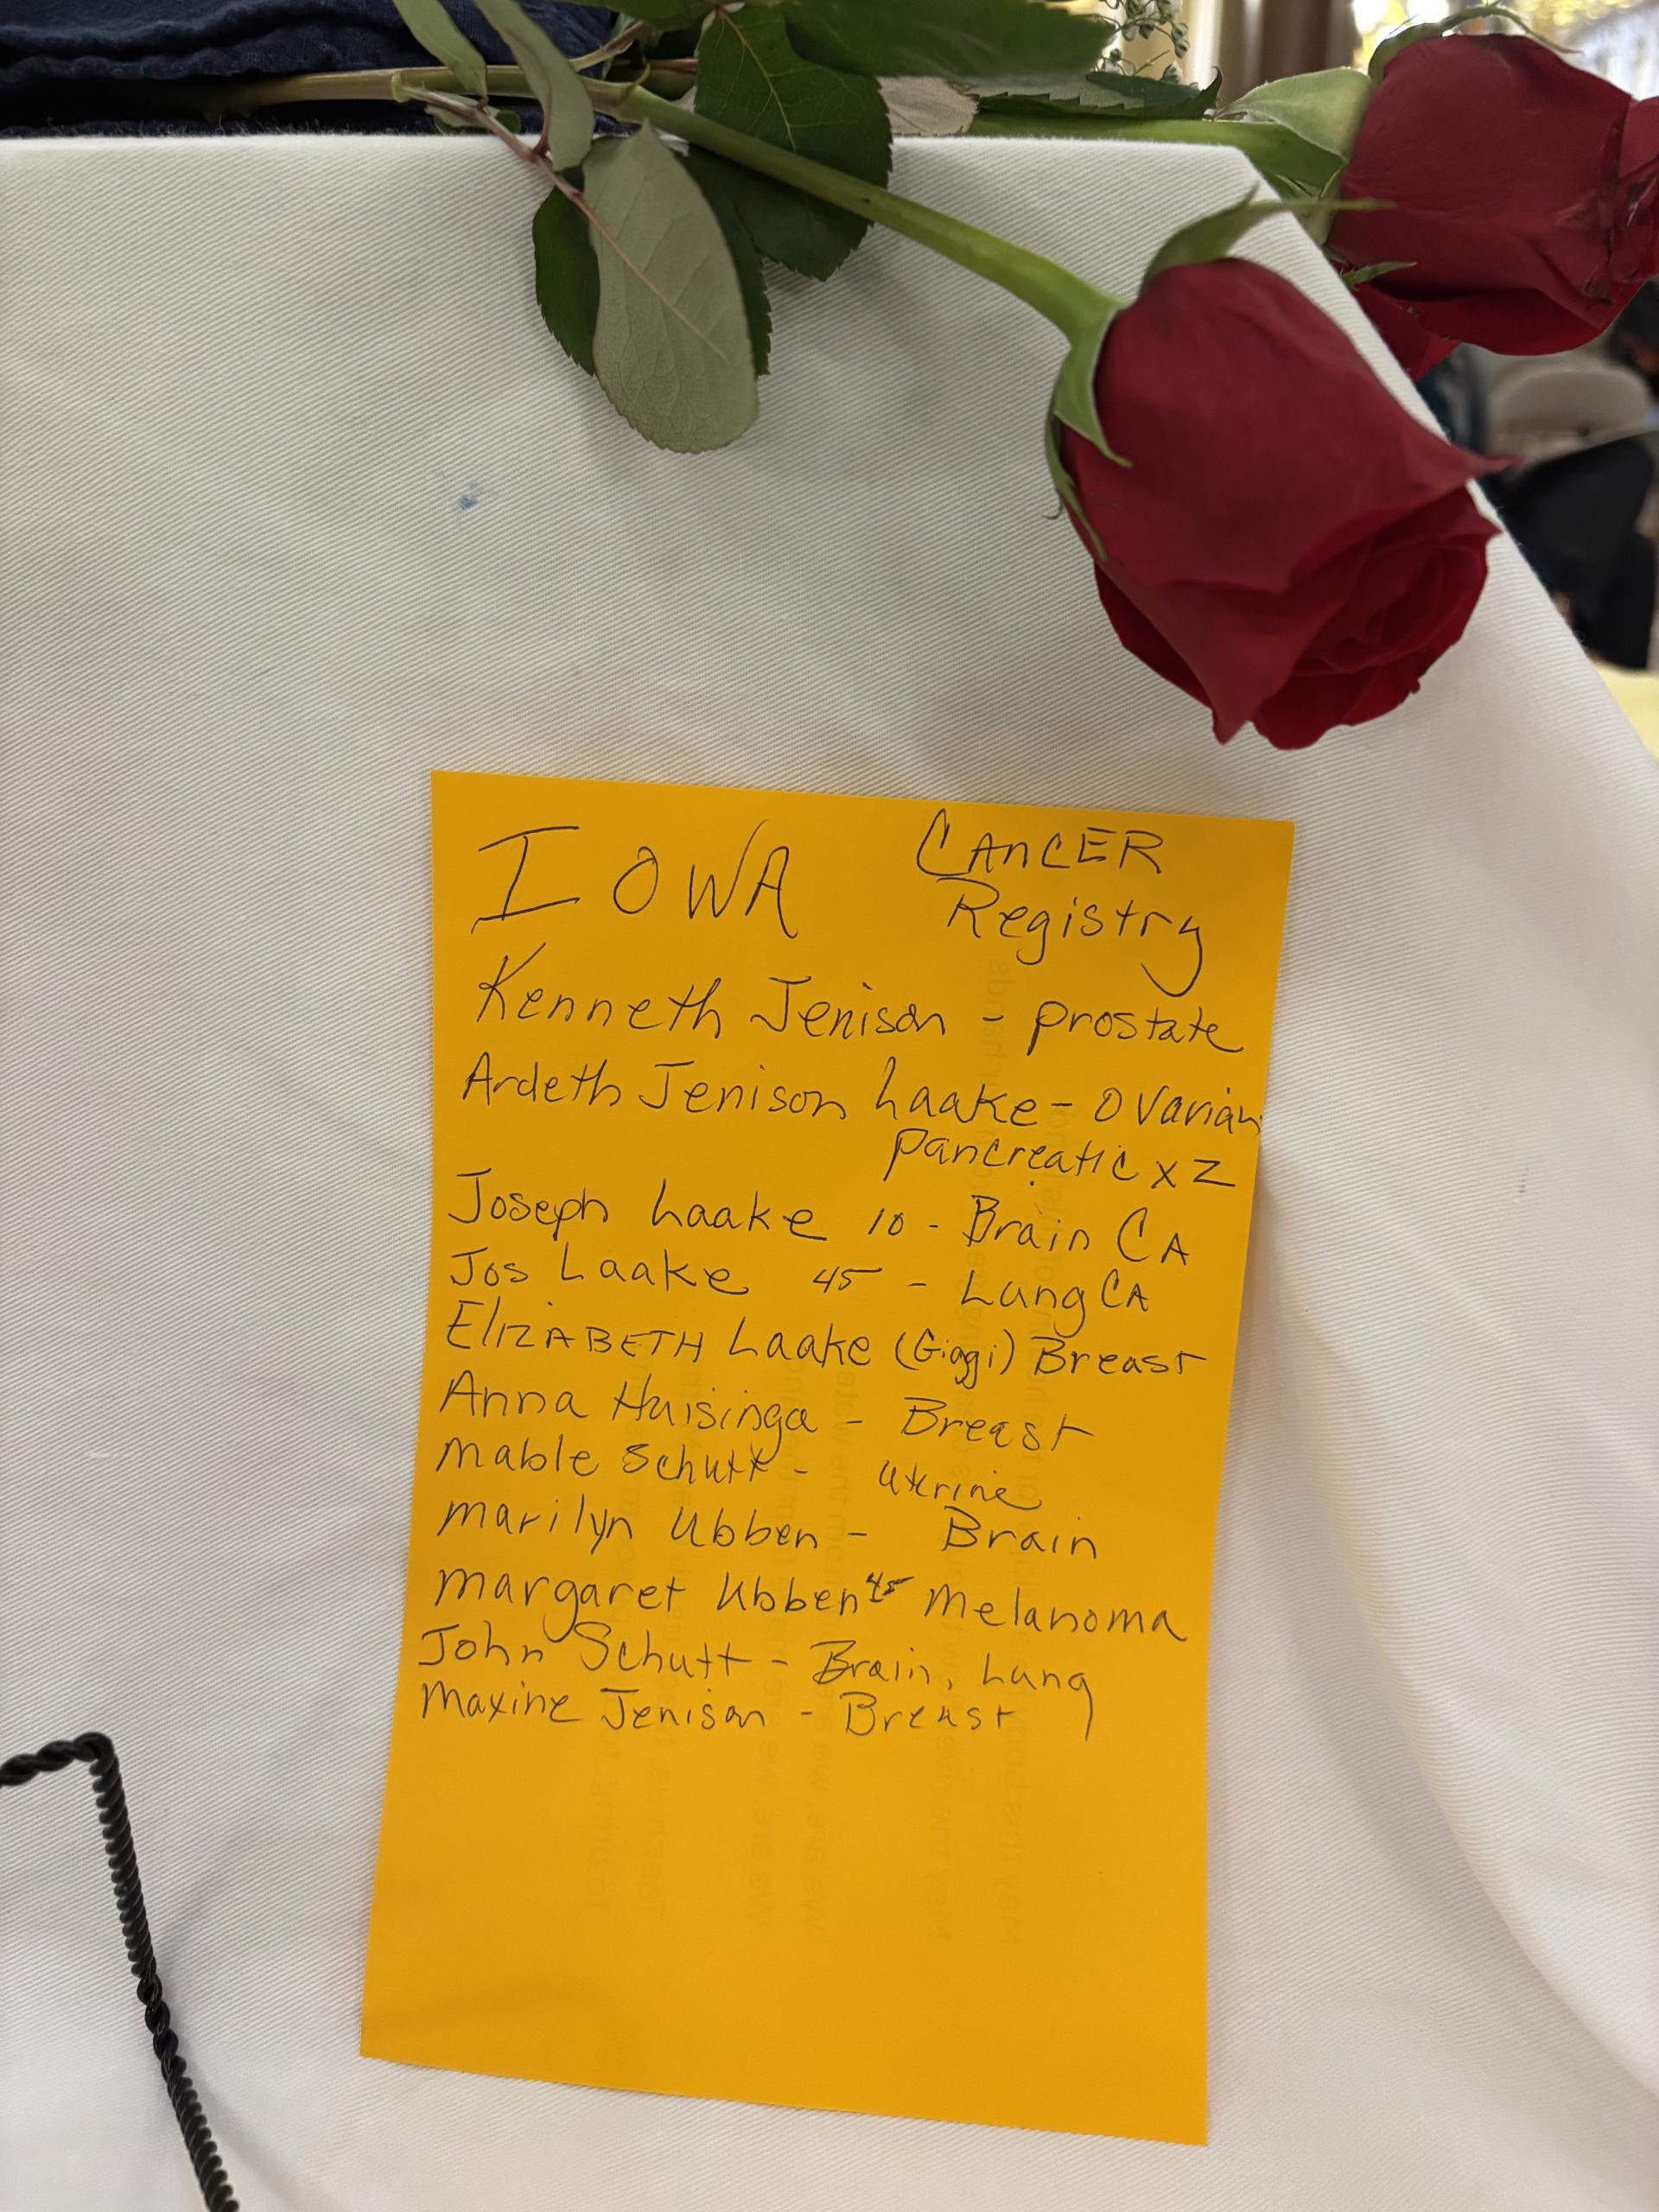 IOWA CANCER
Registry
Kenneth Jenison - prostate
Ardeth Jenison Laake - Ovarian
pancreatic x 2
Joseph Laake 10 - Brain CA
Jos Laake 45 - Lung CA
ElIZABETH Laake (Giggi) Breast
Anna Huisinga - Breast
Mable Schutt - Uterine
Marilyn Ubben - Brain
Margaret Ubben 45 Melanoma
John Schutt - Brain, Lung
Maxine Jenison - Breast